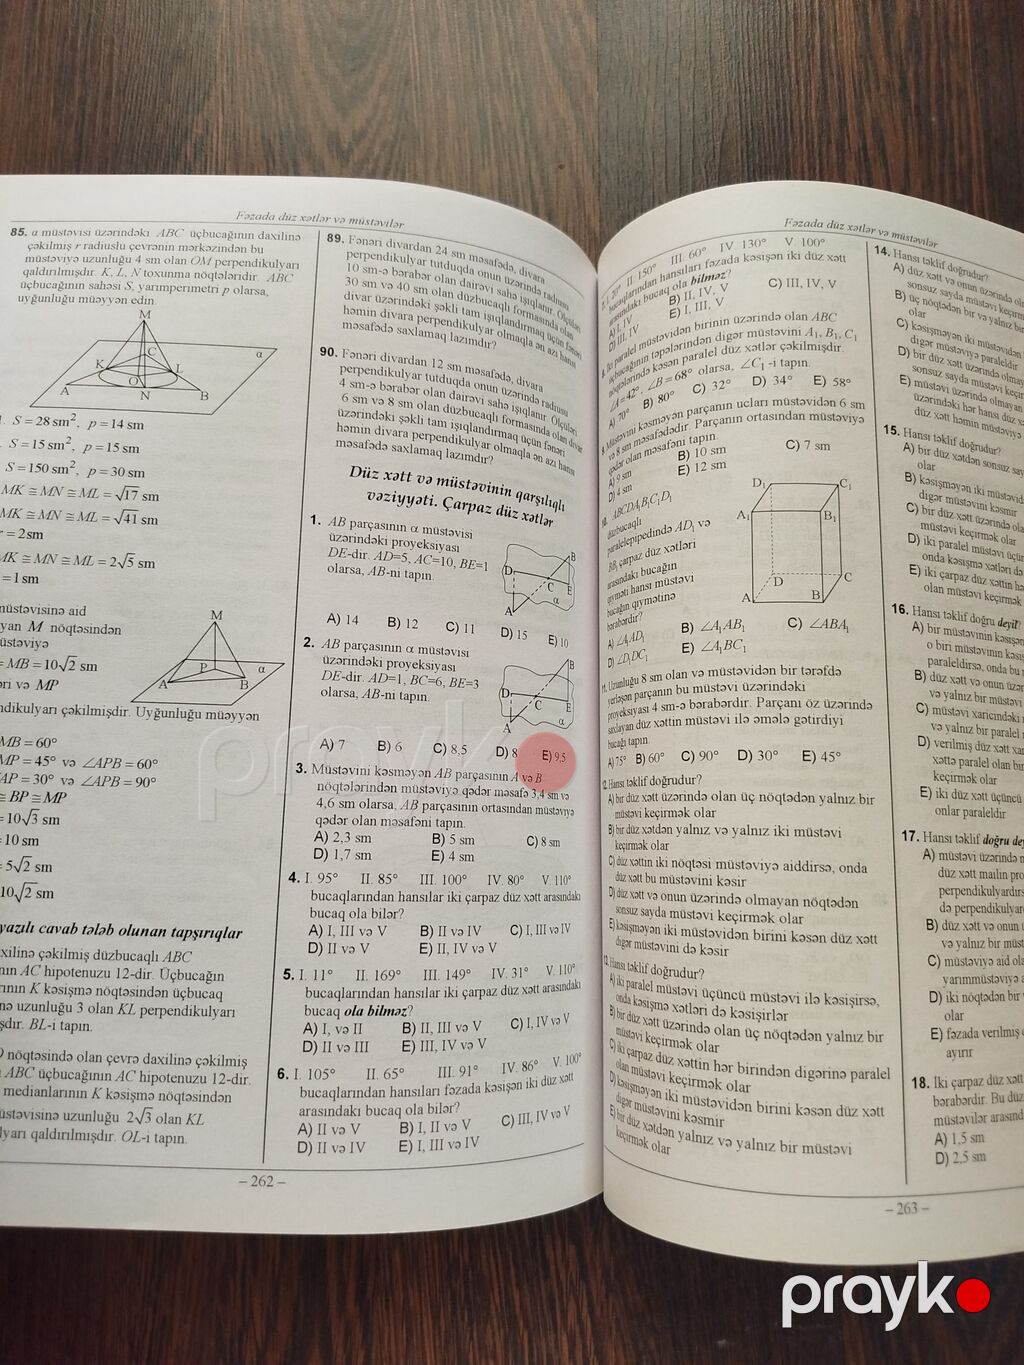 Fəzada düz xətlər və müstəvilər
85. α müstəvisi üzərindəki ABC üçbucağının daxilinə
çəkilmiş r radiuslu çevrənin mərkəzindən bu
müstəviyə uzunluğu 4 sm olan OM perpendikulyarı
qaldırılmışdır. K, L, N toxunma nöqtələridir. ABC
üçbucağının sahəsi S, yarımperimetri p olarsa,
uyğunluğu müəyyən edin.
M
α
K C L
A O B
N
S = 28 sm², p = 14 sm
S = 15 sm², p = 15 sm
S = 150 sm², p = 30 sm
MK ≅ MN ≅ ML = √17 sm
MK ≅ MN ≅ ML = √41 sm
r = 2 sm
MK ≅ MN ≅ ML = 2√5 sm
= 1 sm
müstəvisinə aid
yan M nöqtəsindən
üstəviyə
= MB = 10√2 sm
əri və MP
ndikulyarı çəkilmişdir. Uyğunluğu müəyyən
M
P α
A B
MB = 60°
MP = 45° və ∠APB = 60°
AP = 30° və ∠APB = 90°
≅ BP ≅ MP
= 10√3 sm
= 10 sm
= 5√2 sm
10√2 sm
yazılı cavab tələb olunan tapşırıqlar
axilinə çəkilmiş düzbucaqlı ABC
nın AC hipotenuzu 12-dir. Üçbucağın
rının K kəsişmə nöqtəsindən üçbucaq
nə uzunluğu 3 olan KL perpendikulyarı
şdır. BL-i tapın.
O nöqtəsində olan çevrə daxilinə çəkilmiş
ABC üçbucağının AC hipotenuzu 12-dir.
medianlarının K kəsişmə nöqtəsindən
üstəvisinə uzunluğu 2√3 olan KL
lyarı qaldırılmışdır. OL-i tapın.
89. Fənəri divardan 24 sm məsafədə, divara
perpendikulyar tutduqda onun üzərində radiusu
10 sm-ə bərabər olan dairəvi sahə işıqlanır. Ölçüləri
30 sm və 40 sm olan düzbucaqlı formasında olan
divar üzərindəki şəkli tam işıqlandırmaq üçün fənəri
həmin divara perpendikulyar olmaqla ən azı hansı
məsafədə saxlamaq lazımdır?
90. Fənəri divardan 12 sm məsafədə, divara
perpendikulyar tutduqda onun üzərində radiusu
4 sm-ə bərabər olan dairəvi sahə işıqlanır. Ölçüləri
6 sm və 8 sm olan düzbucaqlı formasında olan divar
üzərindəki şəkli tam işıqlandırmaq üçün fənəri
həmin divara perpendikulyar olmaqla ən azı hansı
məsafədə saxlamaq lazımdır?
Düz xətt və müstəvinin qarşılıqlı
vəziyyəti. Çarpaz düz xətlər
1. AB parçasının α müstəvisi
üzərindəki proyeksiyası
DE-dir. AD=5, AC=10, BE=1
olarsa, AB-ni tapın.
B
D
C E
A α
A) 14 B) 12 C) 11 D) 15 E) 10
2. AB parçasının α müstəvisi
üzərindəki proyeksiyası
DE-dir. AD=1, BC=6, BE=3
olarsa, AB-ni tapın.
B
D
C E
A α
A) 7 B) 6 C) 8,5 D) 8 E) 9,5
3. Müstəvini kəsməyən AB parçasının A və B
nöqtələrindən müstəviyə qədər məsafə 3,4 sm və
4,6 sm olarsa, AB parçasının ortasından müstəviyə
qədər olan məsafəni tapın.
A) 2,3 sm B) 5 sm C) 8 sm
D) 1,7 sm E) 4 sm
4. I. 95° II. 85° III. 100° IV. 80° V. 110°
bucaqlarından hansılar iki çarpaz düz xətt arasındakı
bucaq ola bilər?
A) I, III və V B) II və IV C) I, III və IV
D) II və V E) II, IV və V
5. I. 11° II. 169° III. 149° IV. 31° V. 110°
bucaqlarından hansılar iki çarpaz düz xətt arasındakı
bucaq ola bilməz?
A) I, və II B) II, III və V C) I, IV və V
D) II və III E) III, IV və V
6. I. 105° II. 65° III. 91° IV. 86° V. 100°
bucaqlarından hansıları fəzada kəsişən iki düz xətt
arasındakı bucaq ola bilər?
A) II və V B) I, II və V C) III, IV və V
D) II və IV E) I, III və IV
– 262 –
Fəzada düz xətlər və müstəvilər
II. 150° III. 60° IV. 130° V. 100°
bucaqlarından hansıları fəzada kəsişən iki düz xətt
arasındakı bucaq ola bilməz?
A) I, IV B) II, IV, V C) III, IV, V
D) III, IV E) I, III, V
paralel müstəvidən birinin üzərində olan ABC
üçbucağının təpələrindən digər müstəvini A₁, B₁, C₁
nöqtələrində kəsən paralel düz xətlər çəkilmişdir.
∠A = 42°, ∠B = 68° olarsa, ∠C₁ -i tapın.
A) 70° B) 80° C) 32° D) 34° E) 58°
Müstəvini kəsməyən parçanın ucları müstəvidən 6 sm
və 8 sm məsafədədir. Parçanın ortasından müstəviyə
qədər olan məsafəni tapın.
A) 9 sm B) 10 sm C) 7 sm
D) 4 sm E) 12 sm
10. ABCDA₁B₁C₁D₁
düzbucaqlı
paralelepipedində AD₁ və
BB₁ çarpaz düz xətləri
arasındakı bucağın
qiyməti hansı müstəvi
bucağın qiymətinə
bərabərdir?
D₁ C₁
A₁ B₁
D C
A B
A) ∠A₁AD₁ B) ∠A₁AB₁ C) ∠ABA₁
D) ∠D₁DC₁ E) ∠A₁BC₁
11. Uzunluğu 8 sm olan və müstəvidən bir tərəfdə
yerləşən parçanın bu müstəvi üzərindəki
proyeksiyası 4 sm-ə bərabərdir. Parçanı öz üzərində
saxlayan düz xəttin müstəvi ilə əmələ gətirdiyi
bucağı tapın.
A) 75° B) 60° C) 90° D) 30° E) 45°
12. Hansı təklif doğrudur?
A) bir düz xətt üzərində olan üç nöqtədən yalnız bir
müstəvi keçirmək olar
B) bir düz xətdən yalnız və yalnız iki müstəvi
keçirmək olar
C) düz xəttin iki nöqtəsi müstəviyə aiddirsə, onda
düz xətt bu müstəvini kəsir
D) düz xətt və onun üzərində olmayan nöqtədən
sonsuz sayda müstəvi keçirmək olar
E) kəsişməyən iki müstəvidən birini kəsən düz xətt
digər müstəvini də kəsir
13. Hansı təklif doğrudur?
A) iki paralel müstəvi üçüncü müstəvi ilə kəsişirsə,
onda kəsişmə xətləri də kəsişirlər
B) bir düz xətt üzərində olan üç nöqtədən yalnız bir
müstəvi keçirmək olar
C) iki çarpaz düz xəttin hər birindən digərinə paralel
müstəvi keçirmək olar
D) kəsişməyən iki müstəvidən birini kəsən düz xətt
digər müstəvini kəsmir
E) bir düz xətdən yalnız və yalnız bir müstəvi
keçirmək olar
14. Hansı təklif doğrudur?
A) düz xətt və onun üzərində
sonsuz sayda müstəvi keçirm
B) üç nöqtədən bir və yalnız bir
olar
C) kəsişməyən iki müstəvidən
digər müstəviyə paraleldir
D) bir düz xətt üzərində olmay
sonsuz sayda müstəvi keçir
E) müstəvi üzərində olmayan
üzərindəki hər hansı düz x
düz xətt həmin müstəviyə
15. Hansı təklif doğrudur?
A) bir düz xətdən sonsuz say
olar
B) kəsişməyən iki müstəvid
digər müstəvini kəsmir
C) bir düz xətt üzərində ola
müstəvi keçirmək olar
D) iki paralel müstəvi üçün
onda kəsişmə xətləri də
E) iki çarpaz düz xəttin hə
olan müstəvi keçirmək
16. Hansı təklif doğru deyil?
A) bir müstəvinin kəsişən
o biri müstəvinin kəsiş
paraleldirsə, onda bu
B) düz xətt və onun üzər
və yalnız bir müstəvi
C) müstəvi xaricindəki n
və yalnız bir paralel
D) verilmiş düz xətt xar
xəttə paralel olan bir
keçirmək olar
E) iki düz xətt üçüncü
onlar paraleldir
17. Hansı təklif doğru dey
A) müstəvi üzərində n
düz xətt mailin pro
perpendikulyardırs
də perpendikulyar
B) düz xətt və onun ü
və yalnız bir müst
C) müstəviyə aid ola
yarımmüstəviyə a
D) iki nöqtədən bir
olar
E) fəzada verilmiş
ayırır
18. İki çarpaz düz xətt
bərabərdir. Bu düz
müstəvilər arasınd
A) 1,5 sm
D) 2,5 sm
– 263 –
prayk
prayk